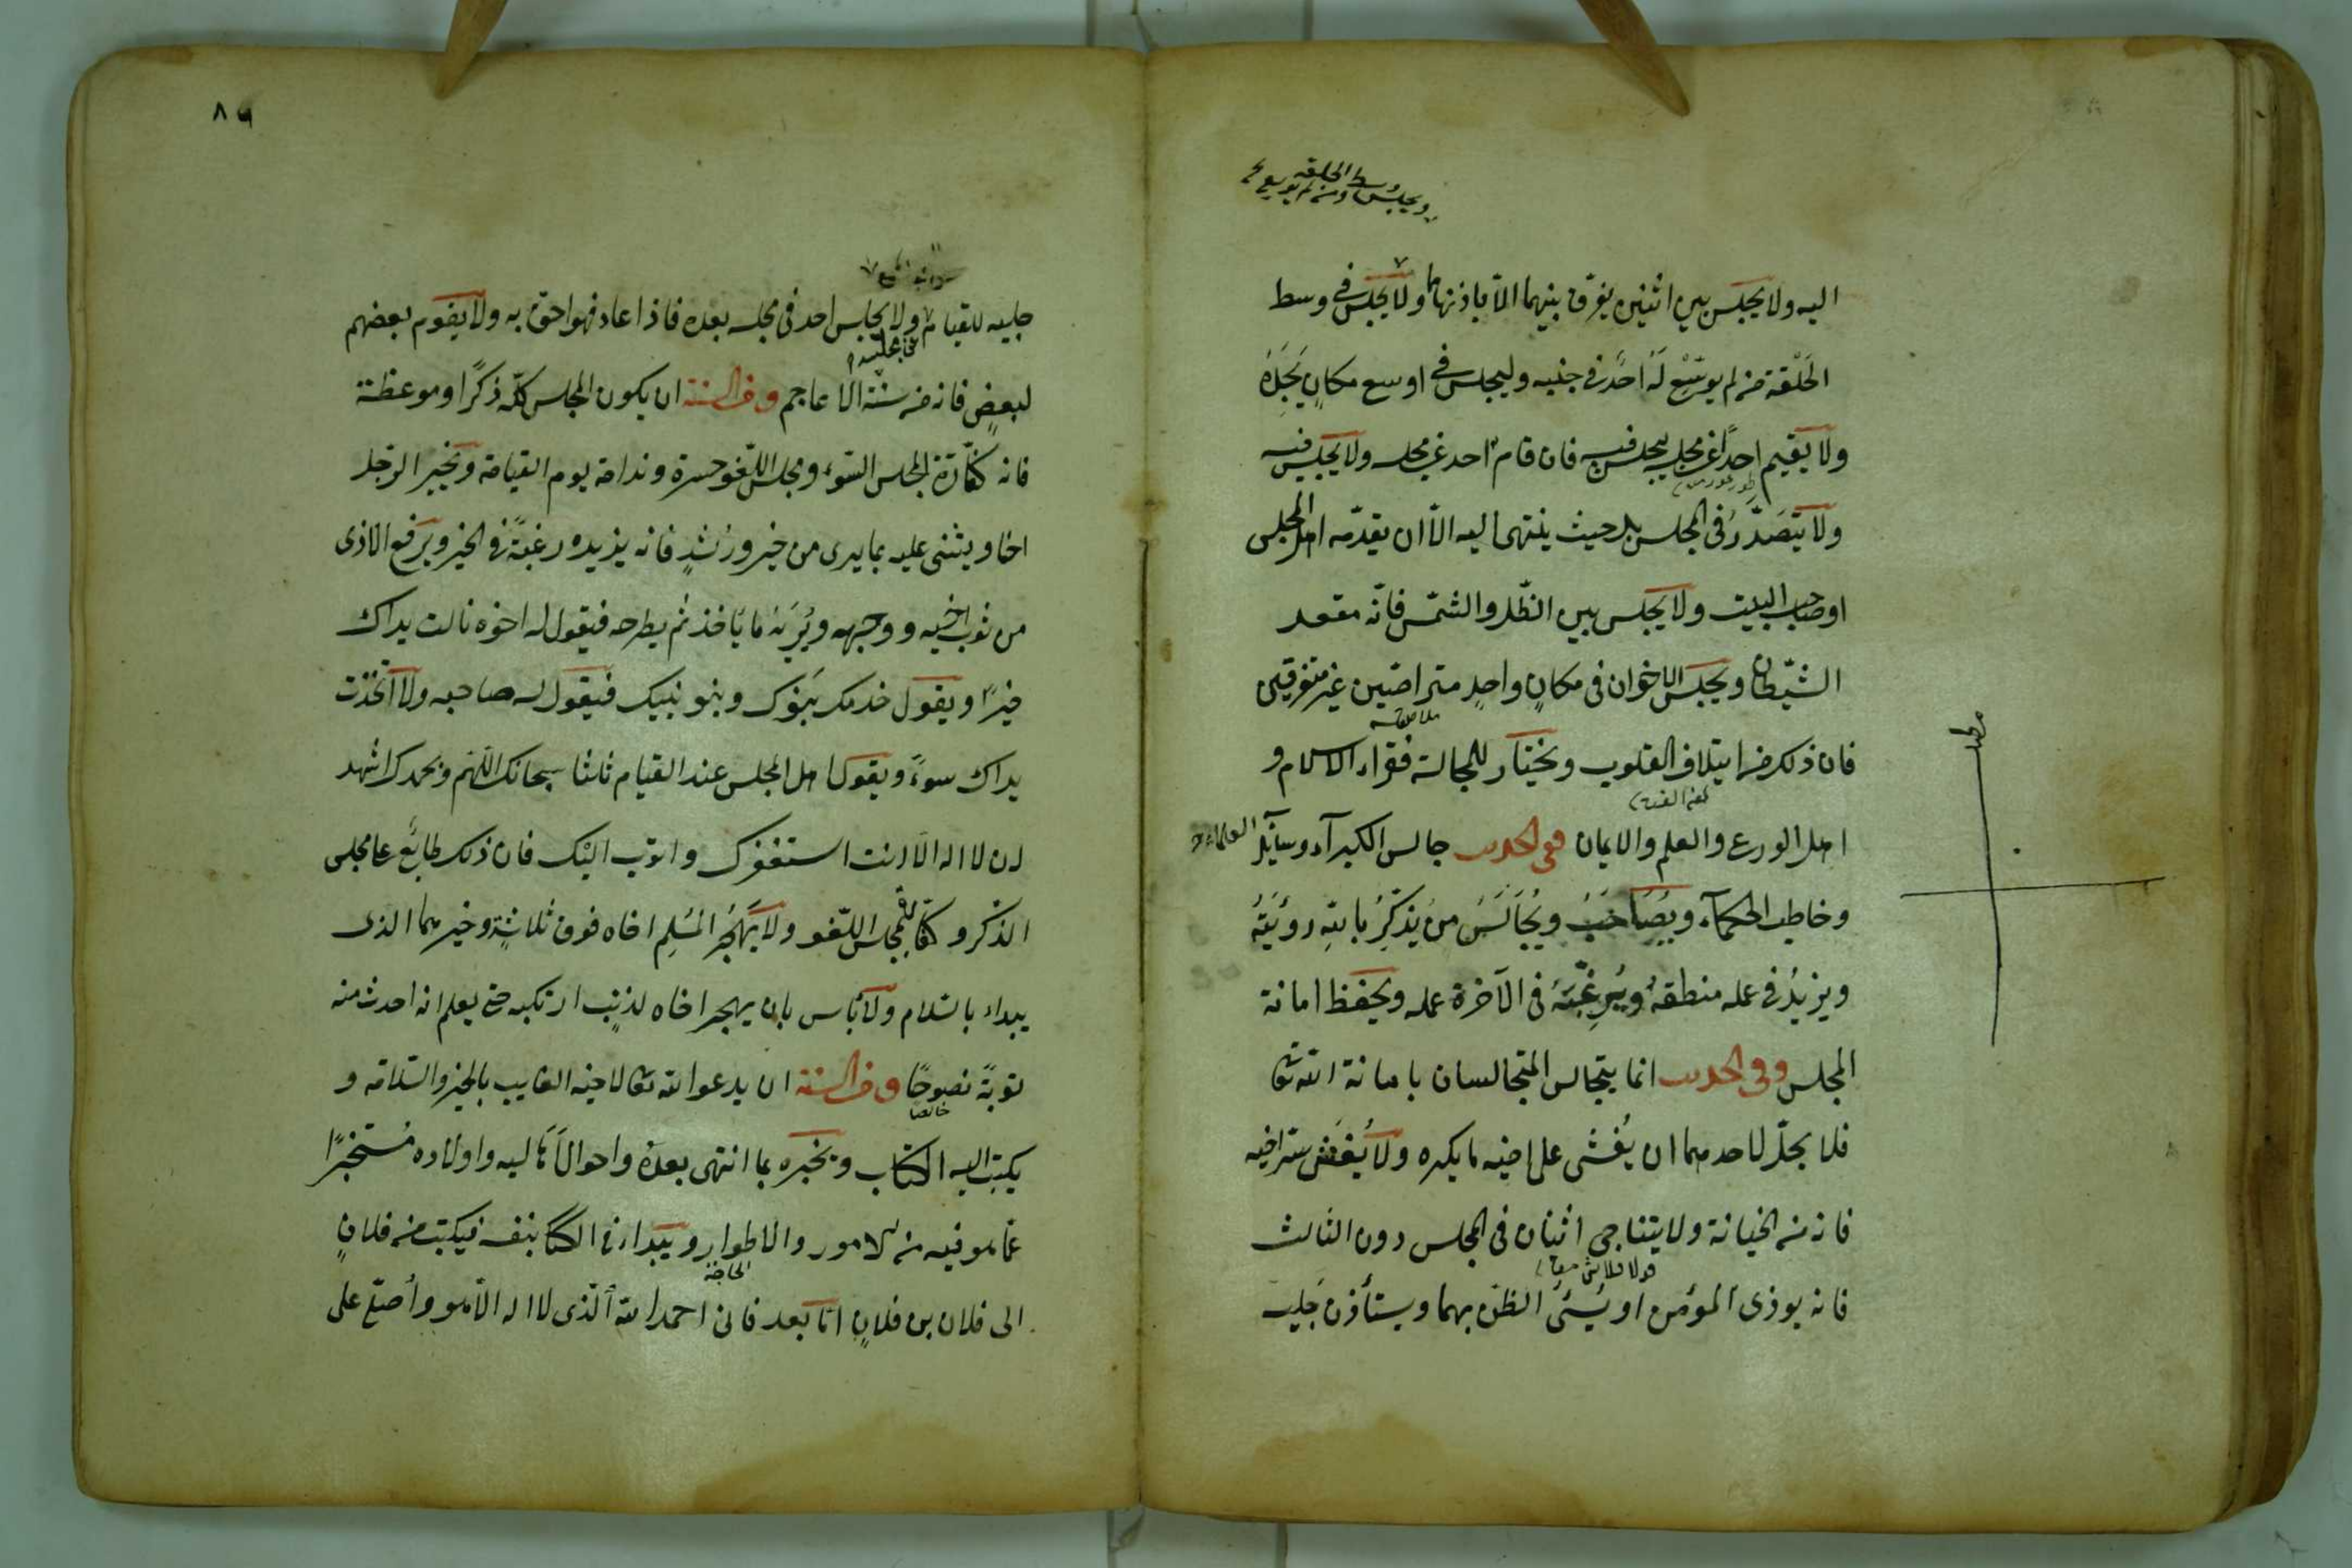 اليه ولا يجلس بين اثنين يفرق بينهما الا باذنهما ولا يجلس في وسط
الحَلْقة من لم يوسّع لَه احدٌ في جنبه وليجلس في اوسع مكانٍ يَجِدُهُ
ولا يقيم احدًا عن مجلسه ليجلس فيه فان قام احد عن مجلسه ولا يجلس فيه
ولا يَتَصَدَّرُ في المجلس بل حيث ينتهى اليه الّا ان يقدّمه اهل المجلس
او صاحب البيت ولا يجلس بين الظّل والشّمس فانّه مقعد
الشّيطان ويجلس الاخوان فى مكانٍ واحدٍ متراصّين غير متفرقين
فان ذلك من ايتلاف القلوب ويختار للمجالسة فقراء الاسلام و
اهل الورع والعلم والايمان ففى الحديث جالس الكبرآء وسآئل العلماء
وخاطب الحكمآء ويُصَاحَبُ ويُجَالَسُ من يُذكِّرُ بالله رُؤيَتُهُ
ويزيدُ في عمله منطقهُ ويُرغِّبُهُ فى الآخرة عمله ويحفظ امانة
المجلس وفى الحديث انما يتجالس المتجالسان بامانة الله تعالى
فلا يحلّ لاحدهما ان يُفشى على اخيه ما يكره ولا يُفش ستر اخيه
فانه من الخيانة ولا يتناجى اثنان فى المجلس دون الثالث
فانه يوذى المؤمن او يُسِئُ الظنّ بهما ويستأذن جَليسه
ويجلس وسط الحلقة ومن لم يوسع
٨٦
جليسه للقيام ولا يجلس احد فى مجلسه بعده فاذا عاد فهو احقّ به ولا يقوم بعضهم
لبعضٍ فانه من سنّة الاعاجم وفى السنة ان يكون المجلس كلّه ذكرًا وموعظة
فانه كفّارة لمجلس السّوء ومجلس اللّغو حسرة وندامة يوم القيامة ويخبر الرّجل
اخاه ويثنى عليه بما يرى من خير ورُشدٍ فانه يزيده رغبةً فى الخير ويرفع الاذى
من ثوب اخيه ووجهه ويُرِيَهُ ما يأخذ ثم يطرحه فيقول له اخوه نالت يداك
خيرًا ويقول خدمك بَنوُك وبنو بنيك فيقول له صاحبه ولا اخذت
يداك سوءً ويقول اهل المجلس عند القيام ثلثا سبحانك اللّهم وبحمدك اشهد
ان لا اله الّا انت استغفرك واتوب اليك فان ذلك طابَعٌ على مجلس
الذّكر وكفّارة لمجلس اللّغو ولا يَهجُرُ المُسلِم اخاه فوق ثلاثةٍ وخيرهما الذى
يبداء بالسّلام ولا بأس بان يهجر اخاه لذنبٍ ارتكبه حتى يعلم انه احدث منه
توبةً نصوحًا وفى السنة ان يدعو الله تعالى لاخيه الغايب بالخير والسّلامة و
خالصا
يكتب اليه الكتاب ويخبره بما انتهى بعده واحوال اهاليه واولاده مُستخبرًا
عمّا هو فيه من الامور والاطوار ويبداء فى الكتاب بنفسه فيكتب من فلانٍ
الى فلان بن فلانٍ امّا بعد فانى احمد الله الّذى لا اله الّا هو وأصلّى على